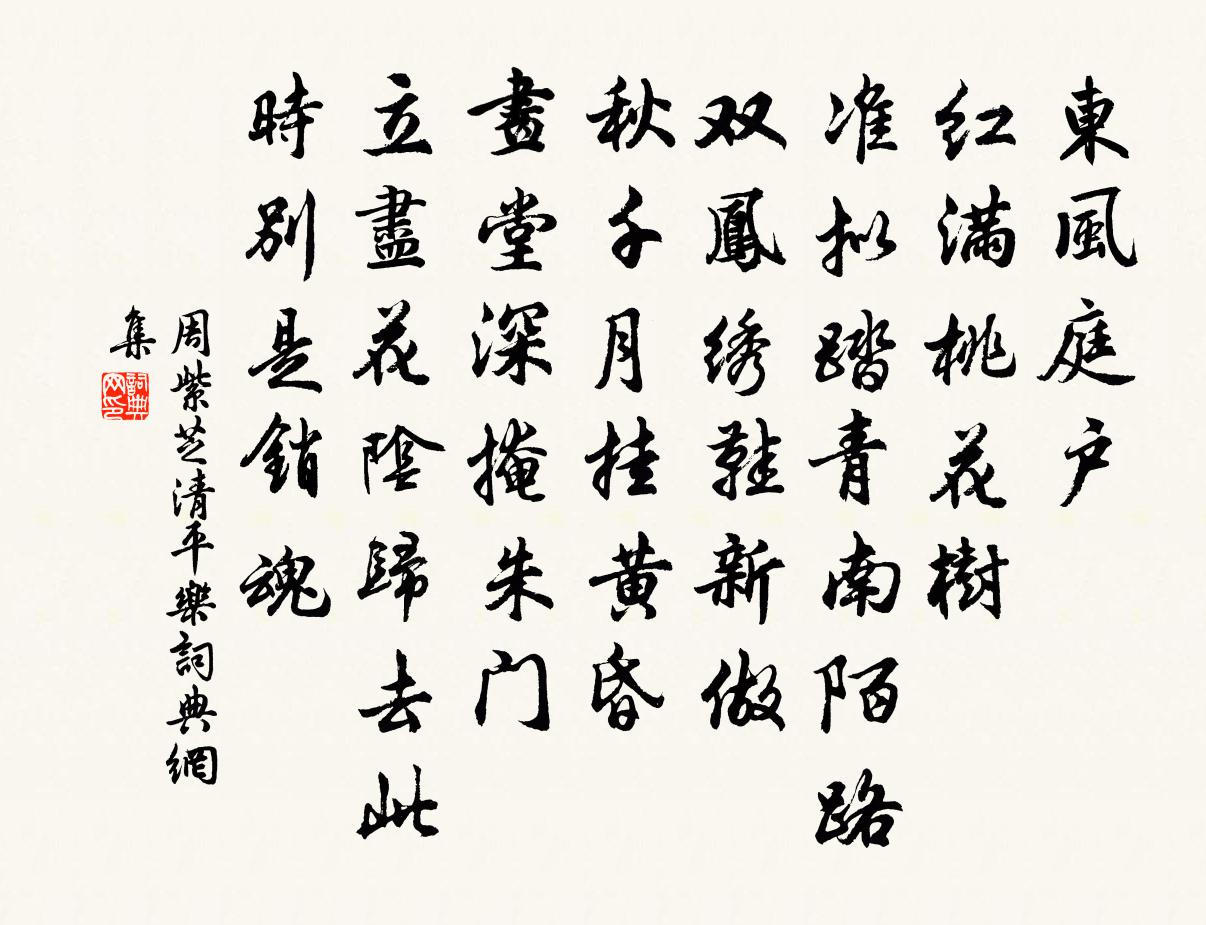 東風庭户
红满桃花樹
准拟踏青南陌路
双鳳绣鞋新做
秋千月挂黄昏
畫堂深掩朱门
立盡花陰歸去此
時别是銷魂
周紫芝清平樂詞典網
集
詞典
网印